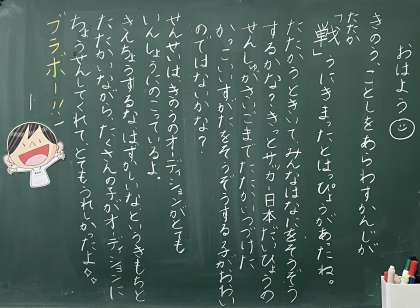 おはよう
きのう、ことしをあらわすかんじが
「戦」
たたか
うにきまったとはっぴょうがあったね。
たたかうときいて、みんなはなにをそうぞう
するかな？きっとサッカー日本だいひょうの
せんしゅがさいごまでたたかいつづけた
かっこいいすがたをそうぞうする子がおおい
のではないかな？
せんせいはきのうのオーディションがとても
いんしょうにのこっているよ。
きんちょうするな、はずかしいなというきもちと
たたかいながら、たくさんの子がオーディションに
ちょうせんしてくれて、とてもうれしかったよ。
ブラボー！！